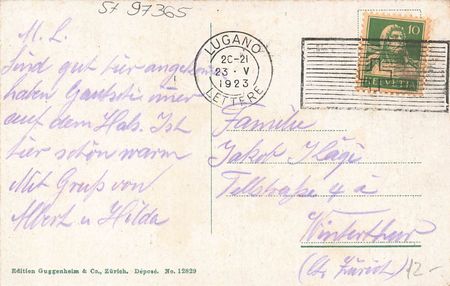 St 97365
M. L.
Sind gut hier angekom
haben Gautschi immer
auf dem Hals. Ist
hier schön warm
Mit Gruss von
Albert u Hilda
LUGANO
20-21
23 · V
1923
LETTERE
10
HELVETIA
Familie
Jakob Kägi
Tellstraße 4 a
Winterthur
(Ct. Zürich)
12-
Edition Guggenheim & Co., Zürich. Déposé. No. 12829